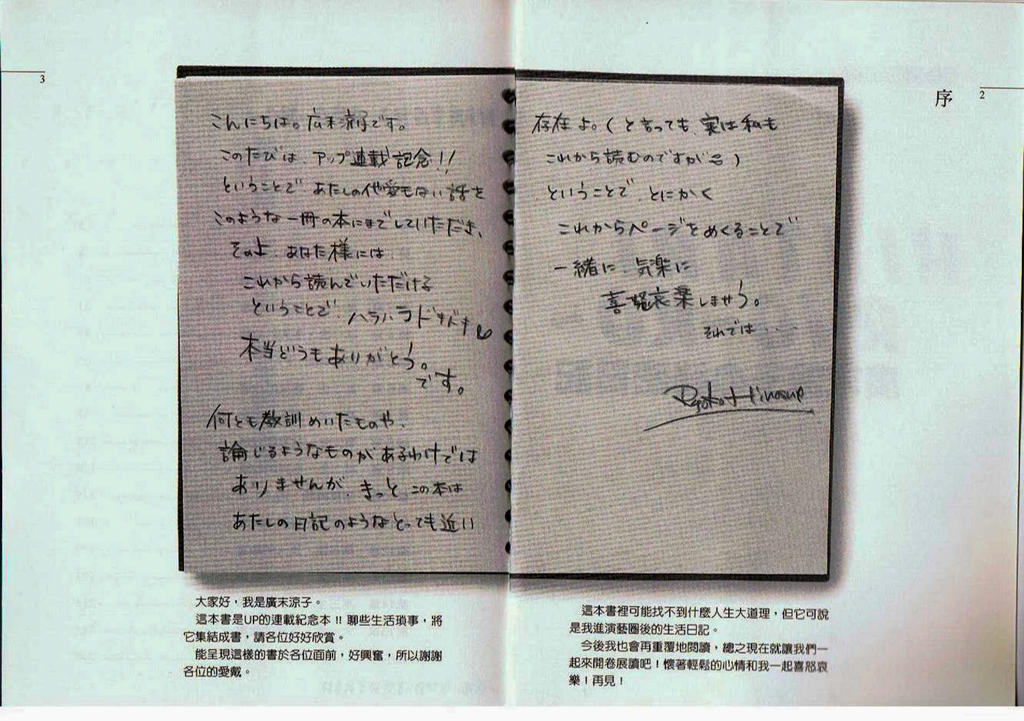 3
こんにちは。広末涼子です。
このたびは、アップ連載記念!!
ということで あたしの他愛もない話を
このような一冊の本にまでしていただき、
その上、あなた様には、
これから読んでいただける
ということで、ハラハラドキドキ
本当どうもありがとう。
です。
何とも教訓めいたものや、
論じるようなものがあるわけでは
ありませんが、きっと、この本は
あたしの日記のようなとっても近い
大家好，我是廣末涼子。
這本書是UP的連載紀念本!!聊些生活瑣事，將
它集結成書，請各位好好欣賞。
能呈現這樣的書於各位面前，好興奮，所以謝謝
各位的愛戴。
序
2
存在よ。(と言っても、実は私も
これから読むのですが )
ということで、とにかく
これからページをめくることで
一緒に、気楽に
喜怒哀楽しませう。
それでは....
Ryoko Hirosue
這本書裡可能找不到什麼人生大道理，但它可說
是我進演藝圈後的生活日記。
今後我也會再重覆地閱讀，總之現在就讓我們一
起來開卷展讀吧！懷著輕鬆的心情和我一起喜怒哀
樂！再見！